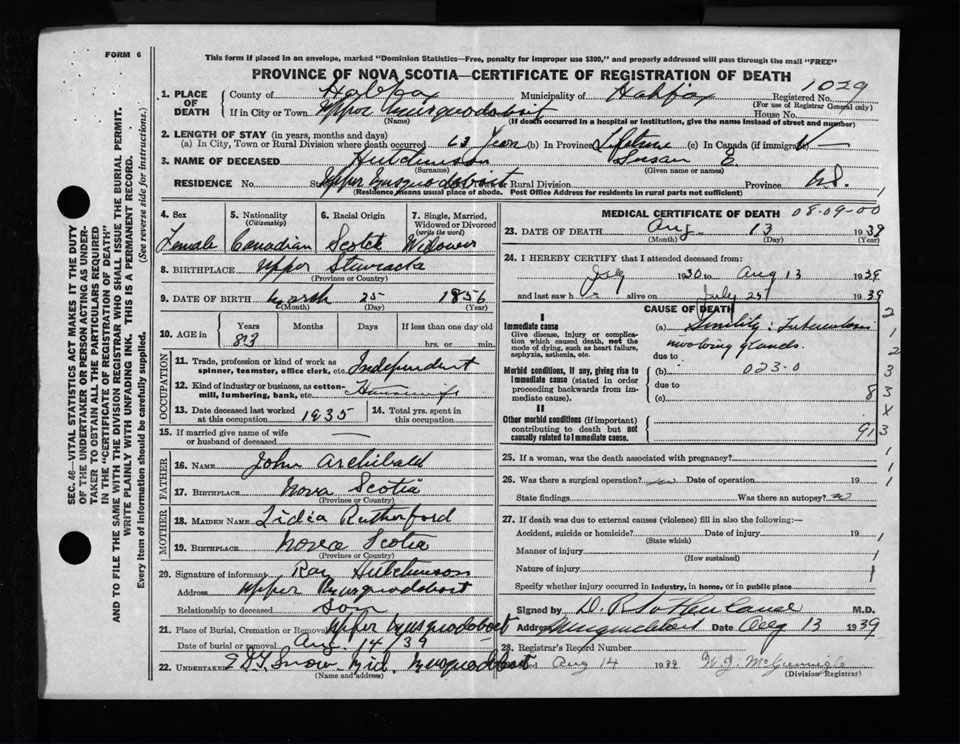 FORM 6
This form if placed in an envelope, marked "Dominion Statistics—Free, penalty for improper use $300," and properly addressed will pass through the mail "FREE"
PROVINCE OF NOVA SCOTIA—CERTIFICATE OF REGISTRATION OF DEATH
1. PLACE OF DEATH County of Halifax Municipality of Halifax Registered No. 1029
(For use of Registrar General only)
If in City or Town Upper Musquodoboit House No.
(Name) (If death occurred in a hospital or institution, give the name instead of street and number)
2. LENGTH OF STAY (in years, months and days)
(a) In City, Town or Rural Division where death occurred 63 Years (b) In Province Lifetime (c) In Canada (if immigrant) —
3. NAME OF DECEASED Hutchinson Susan E.
(Surname) (Given name or names)
RESIDENCE No. Upper Musquodoboit Rural Division Province N.S.
(Residence means usual place of abode. Post Office Address for residents in rural parts not sufficient)
4. Sex Female
5. Nationality (Citizenship) Canadian
6. Racial Origin Scotch
7. Single, Married, Widowed or Divorced (write the word) Widower
8. BIRTHPLACE Upper Stewiacke
(Province or Country)
9. DATE OF BIRTH March 25 1856
(Month) (Day) (Year)
10. AGE in Years 83 Months Days If less than one day old hrs. or min.
OCCUPATION
11. Trade, profession or kind of work as spinner, teamster, office clerk, etc. Independent
12. Kind of industry or business, as cotton-mill, lumbering, bank, etc. Housewife
13. Date deceased last worked at this occupation 1935
14. Total yrs. spent in this occupation
15. If married give name of wife or husband of deceased —
FATHER
16. NAME John Archibald
17. BIRTHPLACE Nova Scotia
(Province or Country)
MOTHER
18. MAIDEN NAME Lidia Rutherford
19. BIRTHPLACE Nova Scotia
(Province or Country)
20. Signature of informant Ray Hutchinson
Address Upper Musquodoboit
Relationship to deceased Son
21. Place of Burial, Cremation or Removal Upper Musquodoboit
Date of burial or removal Aug. 14/39
22. UNDERTAKER Snow Mid. Musquodoboit
(Name and address)
MEDICAL CERTIFICATE OF DEATH 08-09-00
23. DATE OF DEATH Aug. 13 1939
(Month) (Day) (Year)
24. I HEREBY CERTIFY that I attended deceased from:
July 1930 to Aug 13 1939
and last saw h alive on July 25 1939
CAUSE OF DEATH
I
Immediate cause
Give disease, injury or complication which caused death, not the mode of dying, such as heart failure, asphyxia, asthenia, etc.
(a) Senility: Tuberculosis
involving glands.
due to
Morbid conditions, if any, giving rise to immediate cause (stated in order proceeding backwards from immediate cause).
(b) 023-0
due to
(c) 8
II
Other morbid conditions (if important) contributing to death but not causally related to immediate cause.
91
25. If a woman, was the death associated with pregnancy?
26. Was there a surgical operation? no Date of operation 19
State findings Was there an autopsy? no
27. If death was due to external causes (violence) fill in also the following:—
Accident, suicide or homicide? Date of injury 19
(State which)
Manner of injury
Nature of injury
Specify whether injury occurred in industry, in home, or in public place
Signed by M.D.
Address Musquodoboit Date Aug 13 1939
28. Registrar's Record Number
Filed Aug 14 1939
(Division Registrar)
SEC. 46—VITAL STATISTICS ACT MAKES IT THE DUTY
OF THE UNDERTAKER OR PERSON ACTING AS UNDER-
TAKER TO OBTAIN ALL THE PARTICULARS REQUIRED
IN THE "CERTIFICATE OF REGISTRATION OF DEATH"
AND TO FILE THE SAME WITH THE DIVISION REGISTRAR WHO SHALL ISSUE THE BURIAL PERMIT.
WRITE PLAINLY WITH UNFADING INK. THIS IS A PERMANENT RECORD.
Every item of information should be carefully supplied. (See reverse side for instructions.)